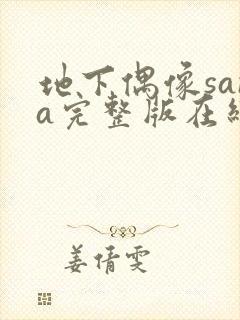 地下偶像sa
a完整版在
姜倩雯